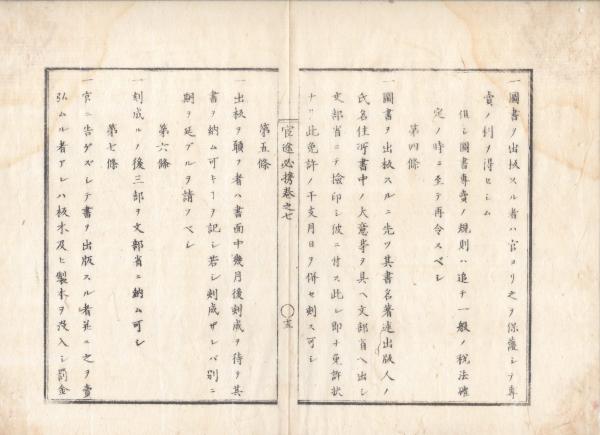 一圖書ヲ出板スル者ハ官ヨリ之ヲ保護シテ專
賣ノ利ヲ得セシム
但シ圖書專賣ノ規則ハ追テ一般ノ稅法確
定ノ時ニ至テ再令スベシ
第四條
一圖書ヲ出板スルニ先ツ其書名著述出版人ノ
氏名住所書中ノ大意等ヲ具ヘ文部省ヘ出シ
文部省ニテ撿印シ彼ニ付ス此レ即チ免許狀
ナリ此免許ノ干支月日ヲ併セ刻ス可シ
官途必携卷之七
十五
第五條
一出板ヲ願フ者ハ書面中幾月後刻成ヲ待テ其
書ヲ納ム可キヿヲ記シ若シ刻成ザレバ別ニ
期ヲ延ブルヲ請フベシ
第六條
一刻成ルノ後三部ヲ文部省ニ納ム可シ
第七條
一官ニ告ゲズシテ書ヲ出版スル者並ニ之ヲ賣
弘ムル者アレハ板木及ヒ製本ヲ沒入シ罰金